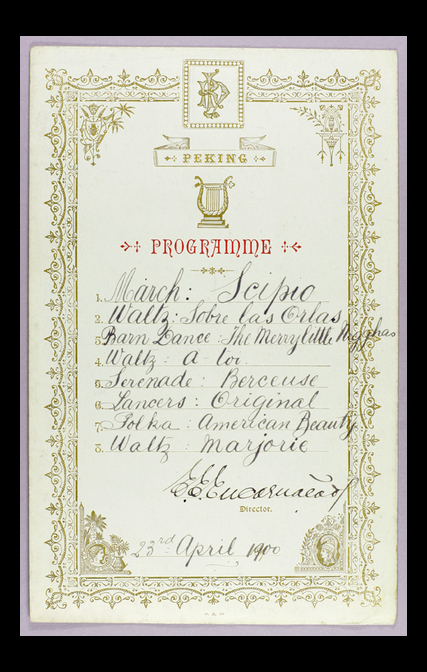 PEKING
PROGRAMME
1. March: Scipio
2. Waltz: Sobre las Orlas
3. Barn Dance: The Merry little
4. Waltz: A toi
5. Serenade: Berceuse
6. Lancers: Original
7. Polka: American Beauty
8. Waltz: Marjorie
E.E. Encarnação
Director.
23rd April, 1900